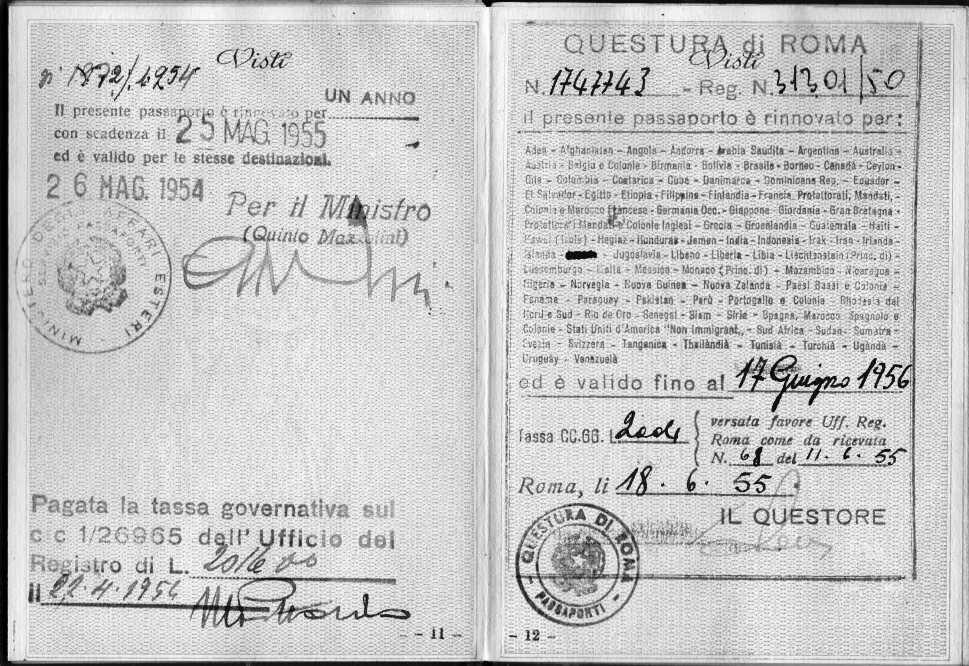 Visti
n° 1872/4254
Il presente passaporto è rinnovato per UN ANNO
con scadenza il 25 MAG. 1955
ed è valido per le stesse destinazioni.
26 MAG. 1954
Per il Ministro
(Quinto Mazzolini)
MINISTERO DEGLI AFFARI ESTERI
PASSAPORTI
Pagata la tassa governativa sul
c c 1/26965 dell'Ufficio del
Registro di L.
il 22.4.1954
- 11 -
QUESTURA di ROMA
Visti
N. 1747743 - Reg. N. 31301/50
il presente passaporto è rinnovato per:
Aden - Afghanistan - Angola - Andorra - Arabia Saudita - Argentina - Australia -
Austria - Belgio e Colonie - Birmania - Bolivia - Brasile - Borneo - Canadà - Ceylon -
Cile - Colombia - Costarica - Cuba - Danimarca - Dominicana Rep. - Ecuador -
El Salvador - Egitto - Etiopia - Filippine - Finlandia - Francia, Protettorati, Mandati,
Colonie e Marocco Francese - Germania Occ. - Giappone - Giordania - Gran Bretagna -
Protettorati Mandati e Colonie Inglesi - Grecia - Groenlandia - Guatemala - Haiti -
Hawai (Isole) - Hegiaz - Honduras - Jemen - India - Indonesia - Irak - Iran - Irlanda -
Islanda - Jugoslavia - Libano - Liberia - Libia - Liechtenstein (Princ. di) -
Lussemburgo - Malta - Messico - Monaco (Princ. di) - Mozambico - Nicaragua -
Nigeria - Norvegia - Nuova Guinea - Nuova Zelanda - Paesi Bassi e Colonie -
Panama - Paraguay - Pakistan - Perù - Portogallo e Colonie - Rhodesia del
Nord e Sud - Rio de Oro - Senegal - Siam - Siria - Spagna, Marocco Spagnolo e
Colonie - Stati Uniti d'America "Non Immigrant„ - Sud Africa - Sudan - Sumatra -
Svezia - Svizzera - Tanganica - Thailàndia - Tunisia - Turchia - Ugànda -
Uruguay - Venezuela
ed è valido fino al 17 Giugno 1956
Tassa CC.GG. L. versata favore Uff. Reg.
Roma come da ricevuta
N. 68 del 11. 6. 55
Roma, li 18 . 6. 55
IL QUESTORE
QUESTURA DI ROMA
PASSAPORTI
- 12 -